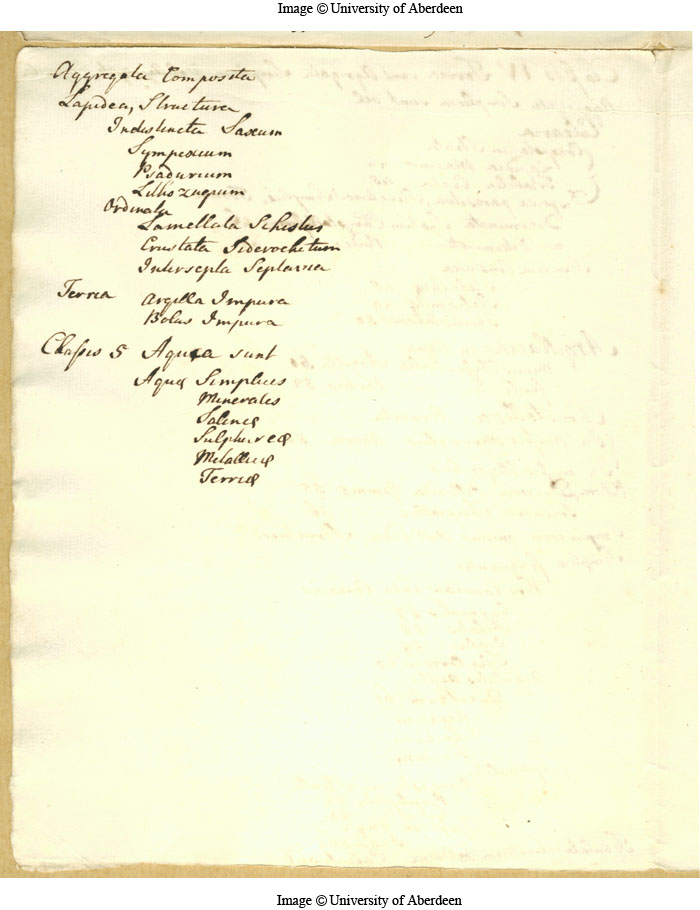 Image © University of Aberdeen
Aggregata Composita
Lapidea, Structura
Indistincta Saxum
Sympexium
Psadurium
Lithozugum
Ordinata
Lamellata Schistus
Crustata Siderochitum
Intersepta Septaria
Terrea Argilla Impura
Bolus Impura
Classis 5 Aquea sunt
Aquæ Simplices
Minerales
Salinæ
Sulphureæ
Metallicæ
Terreæ
Image © University of Aberdeen